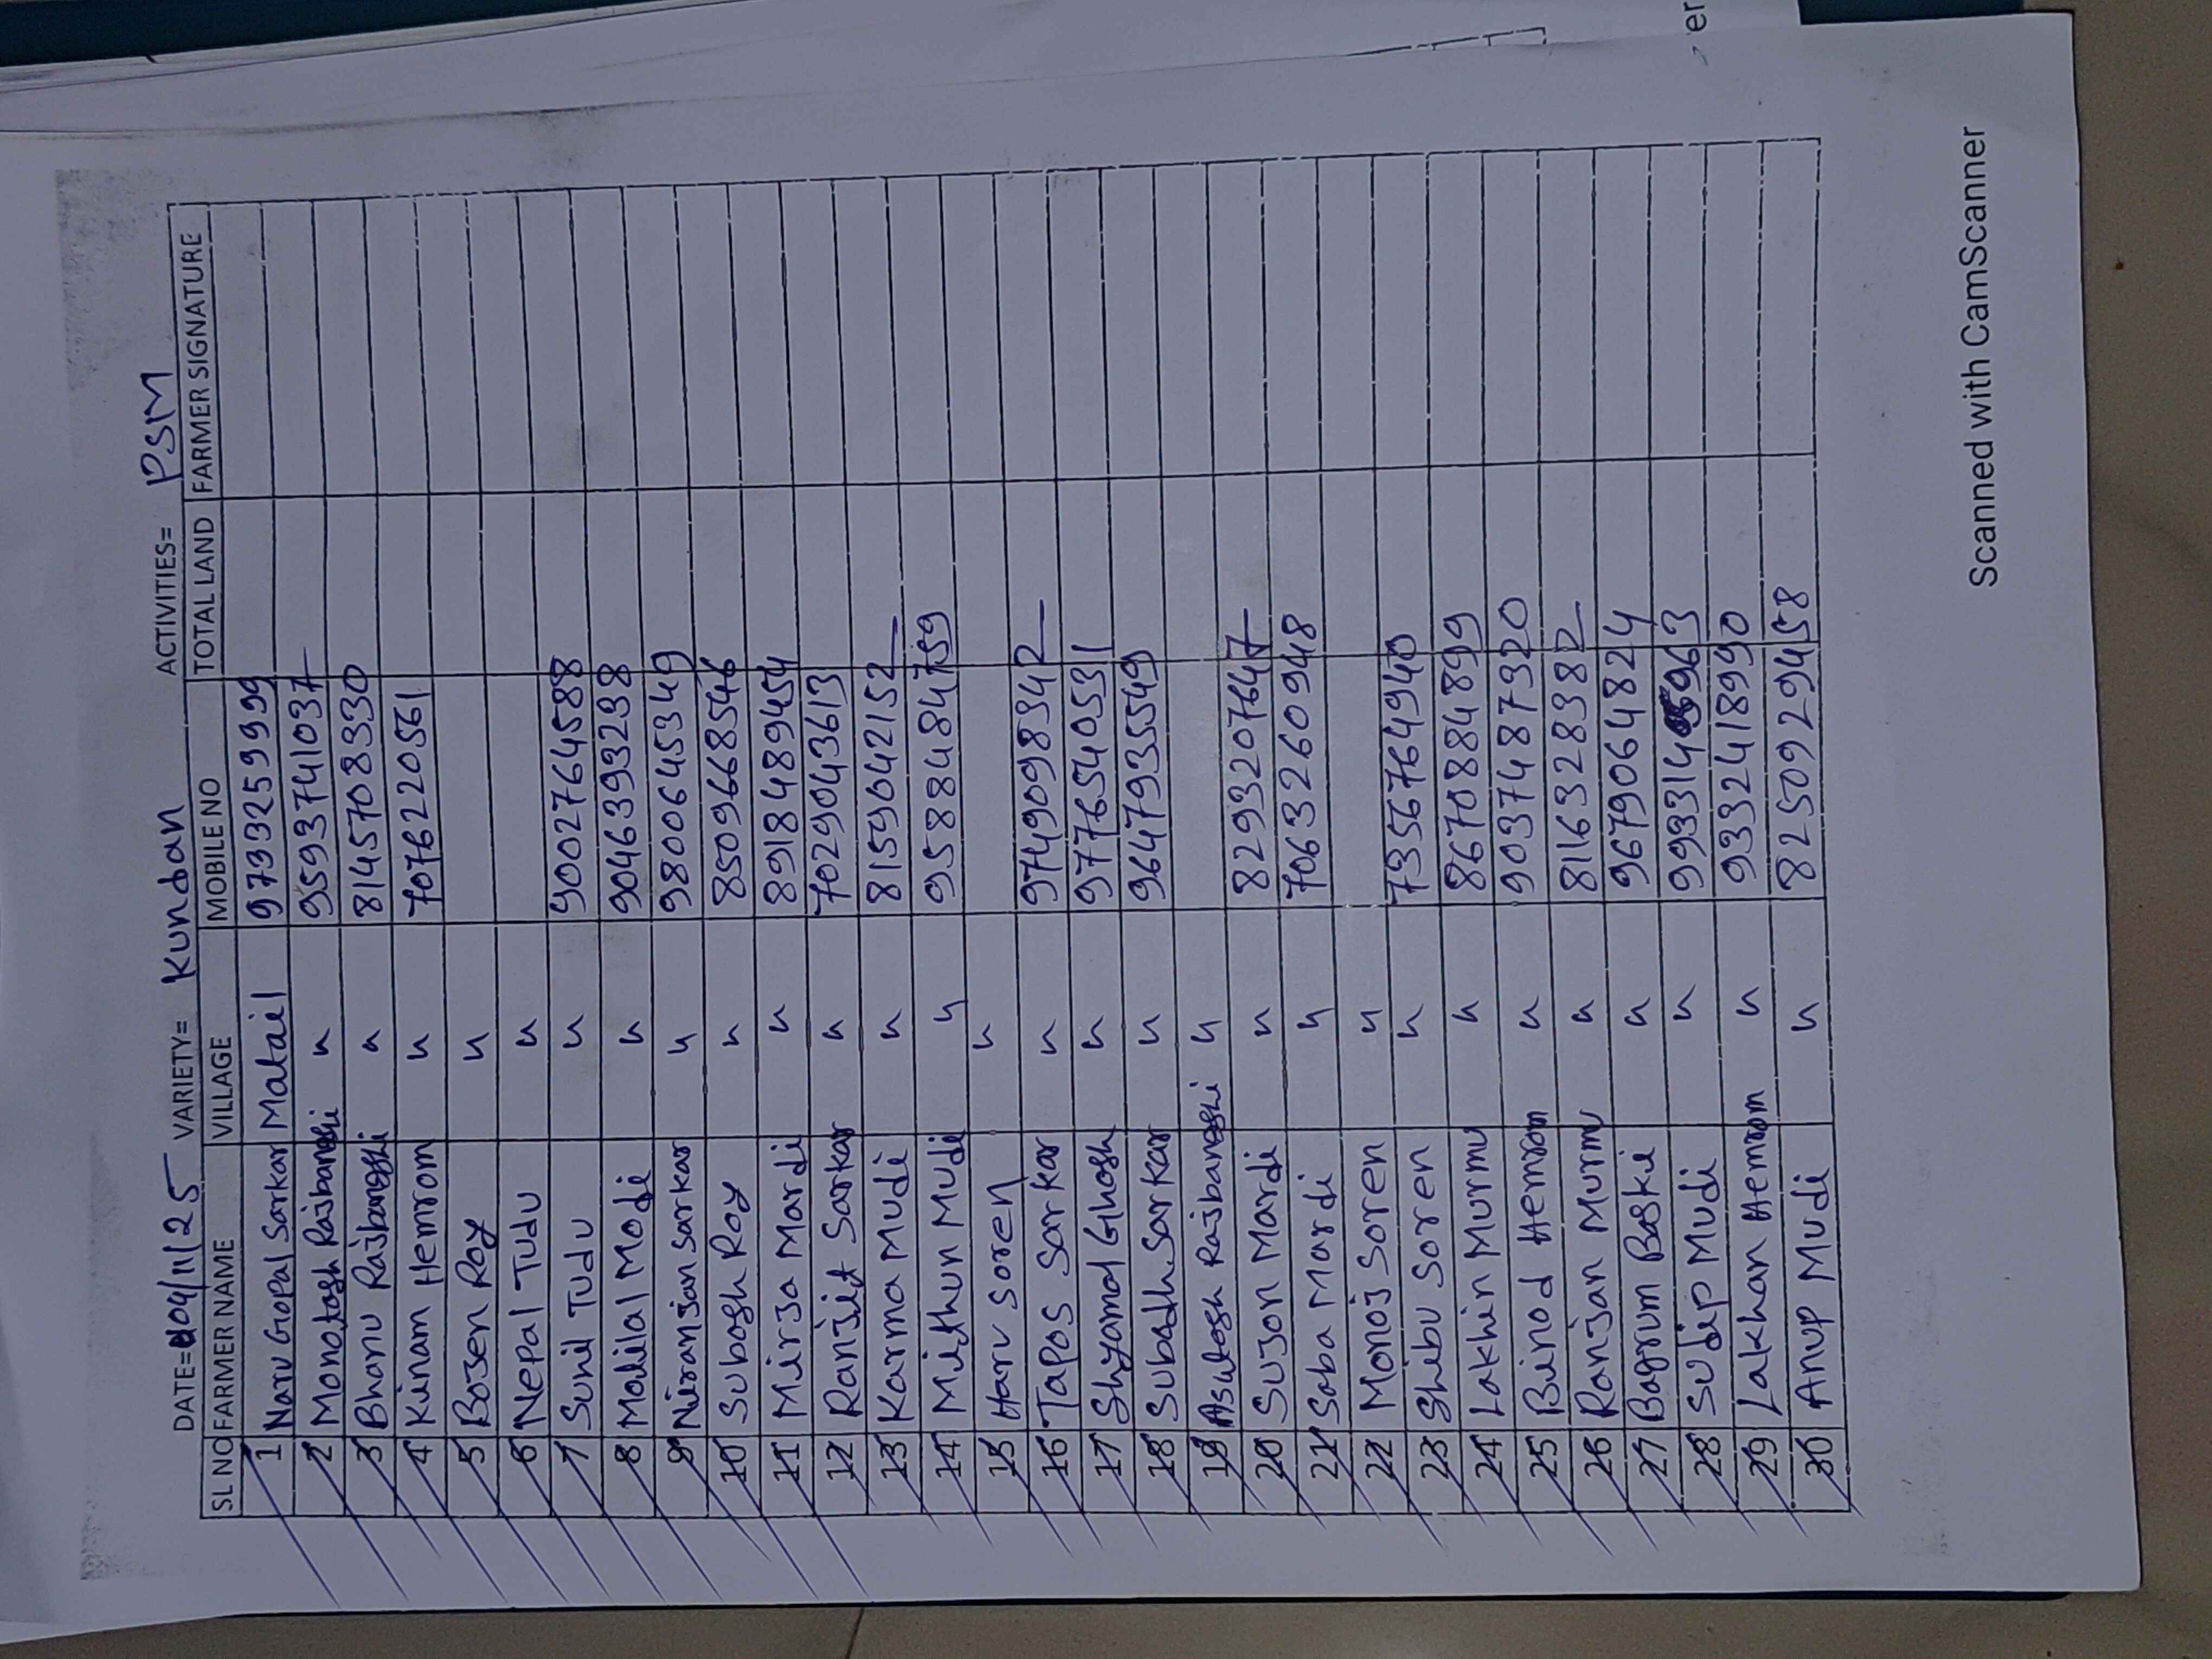 DATE= 04/11/25 VARIETY= Kundan ACTIVITIES= PSM
SL NO FARMER NAME VILLAGE MOBILE NO TOTAL LAND FARMER SIGNATURE
1 Naru Gopal Sarkar Matail 9733259999
2 Monotosh Rajbangshi " 9593741037
3 Bhanu Rajbangshi " 8145708330
4 Kinam Hemrom " 7076220561
5 Bosen Roy "
6 Nepal Tudu "
7 Sunil Tudu " 9002764588
8 Molilal Modi " 9046393238
9 Niranjan Sarkar " 9800645349
10 Subogh Roy " 8509668546
11 Mirja Mardi " 8918489454
12 Ranjit Sarkar " 7029043613
13 Karma Mudi " 8159042152
14 Mithun Mudi " 9588484759
15 Haru Soren "
16 Tapos Sarkar " 9749098342
17 Shyamal Ghosh " 9776540531
18 Subodh Sarkar " 9647935549
19 Asutosh Rajbangshi "
20 Sujon Mardi " 8293207647
21 Soba Mardi " 7063260948
22 Monoj Soren "
23 Shibu Soren " 7356764940
24 Lakhin Murmu " 8670884899
25 Binod Hemrom " 9037487320
26 Ranjan Murmu " 8116328382
27 Bagrum Baski " 9679064824
28 Sudip Mudi "
29 Lakhan Hemrom " 9332418990
30 Anup Mudi " 8250929458
Scanned with CamScanner
er